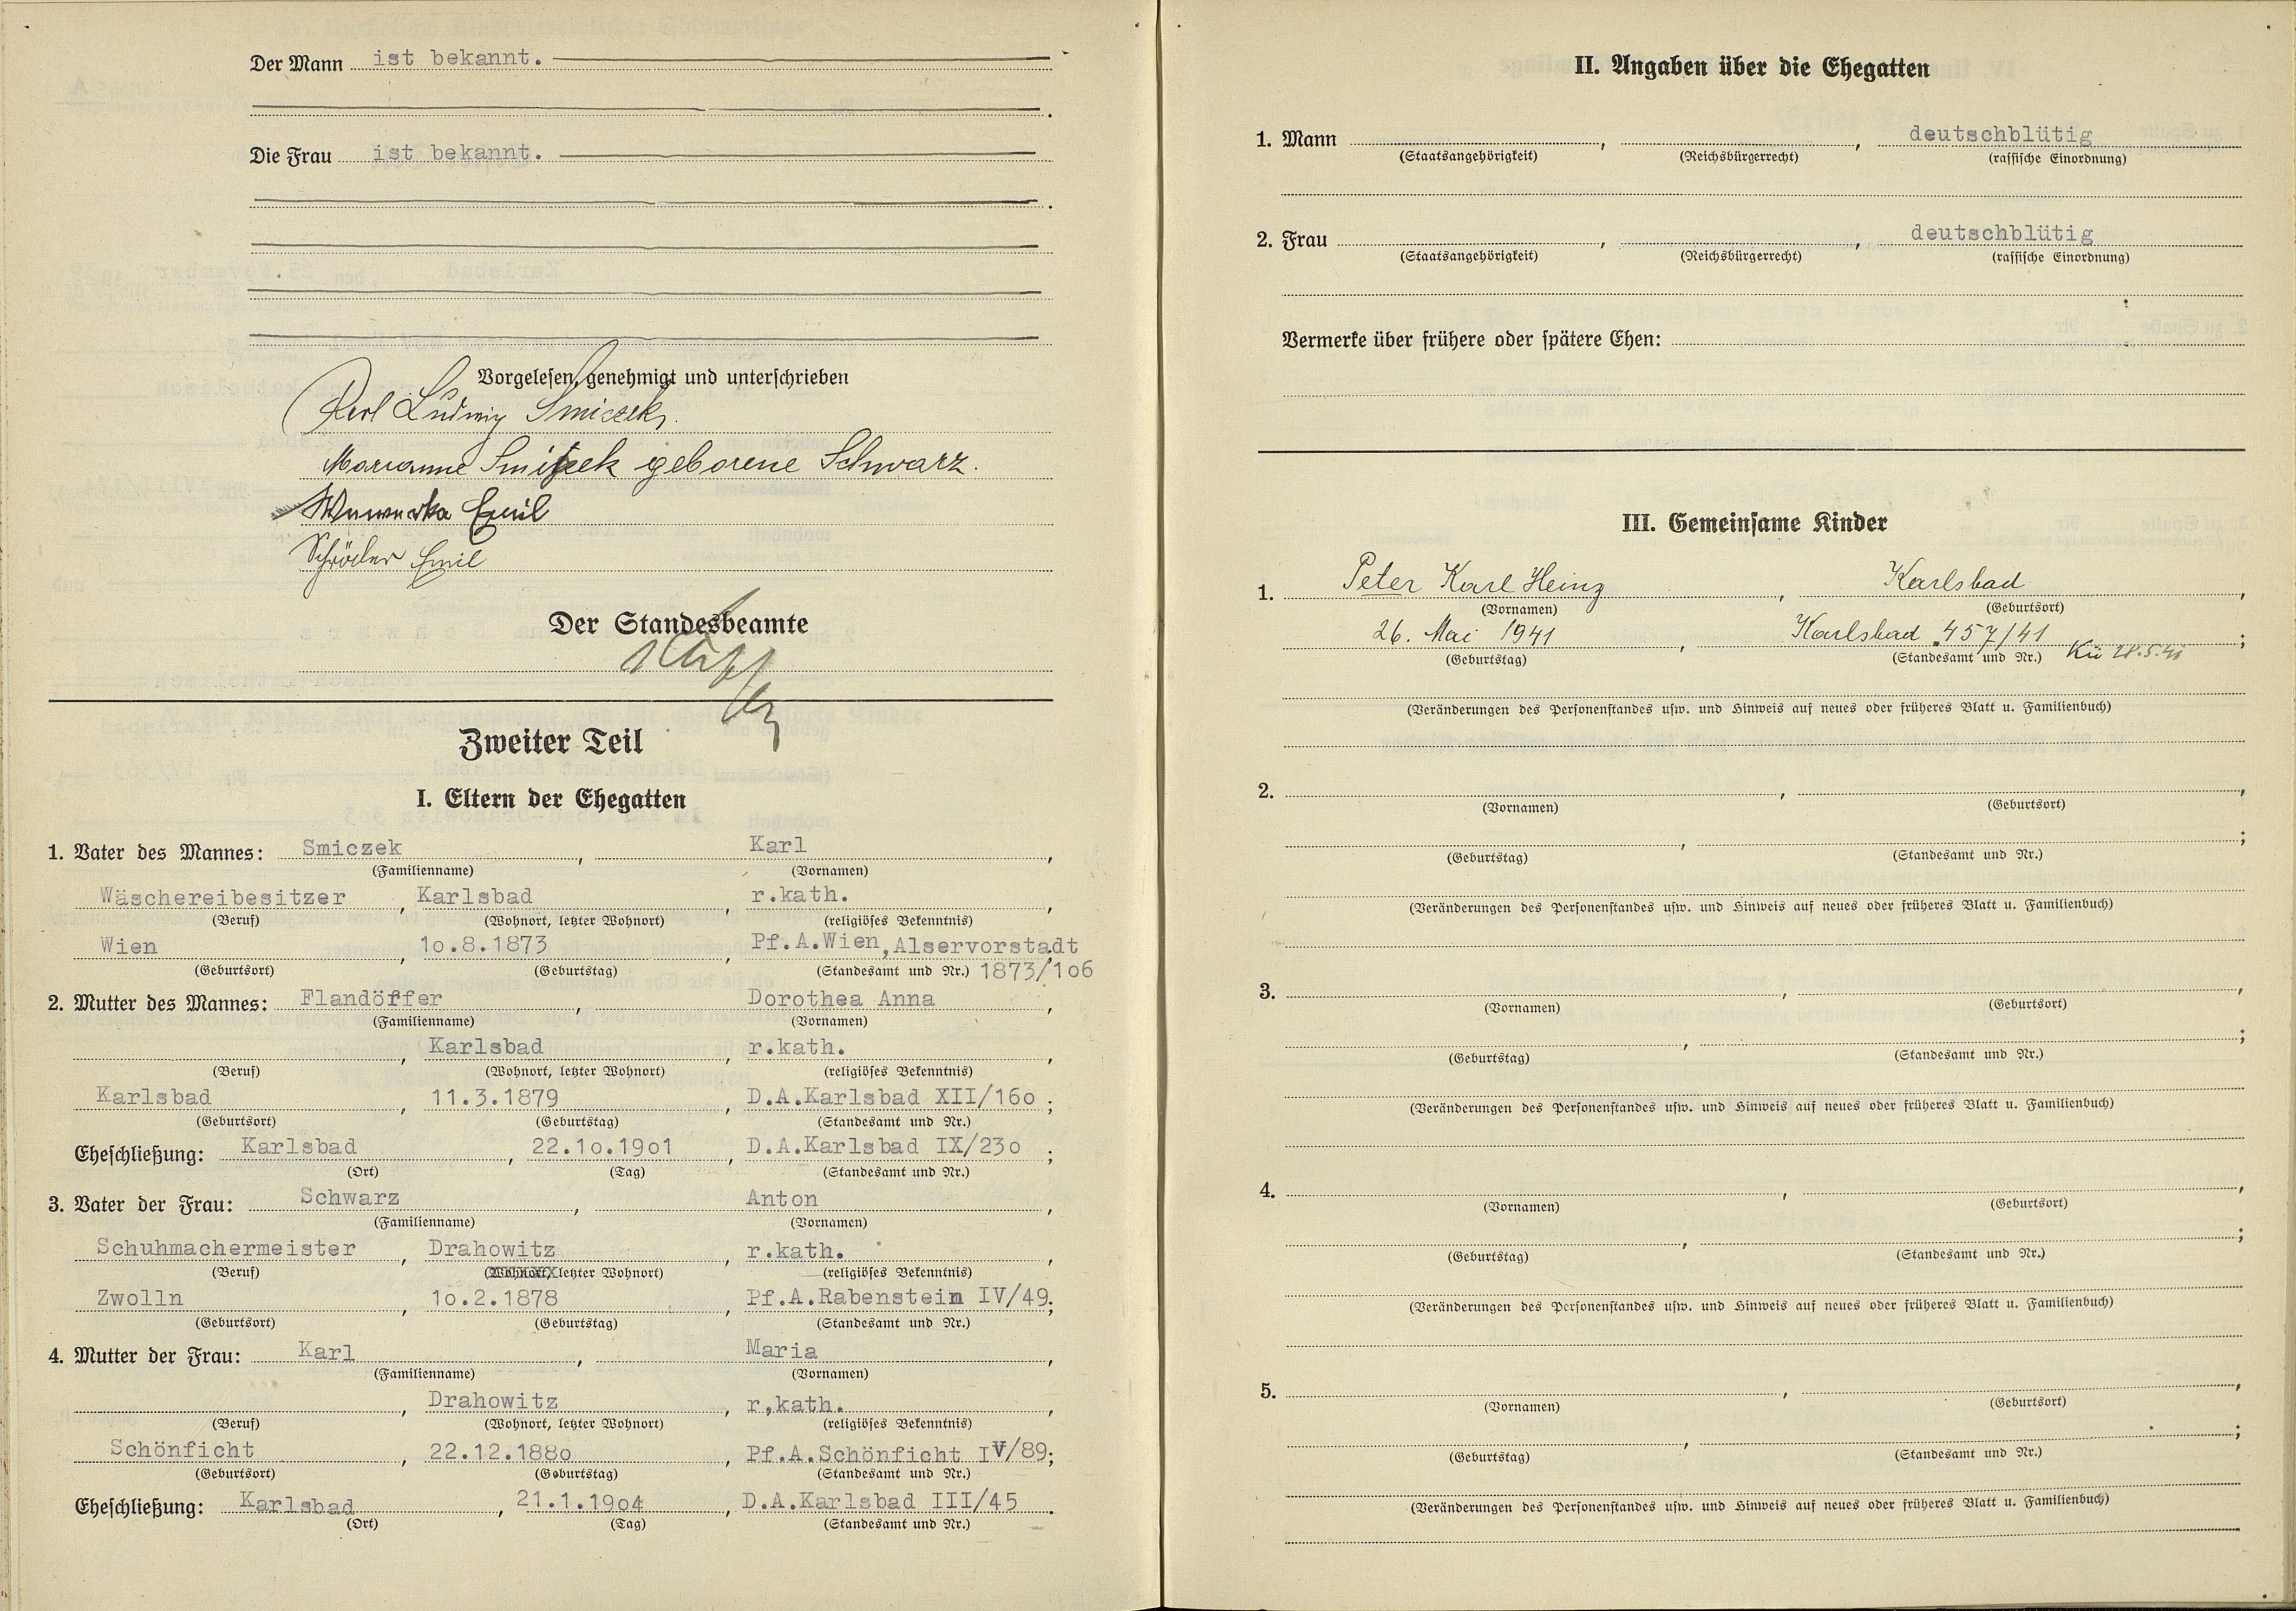 Der Mann ist bekannt.
Die Frau ist bekannt.
Vorgelesen, genehmigt und unterschrieben
Karl Ludwig Smiczek.
Marianne Smiczek geborene Schwarz.
Wawerka Emil
Schröder Emil
Der Standesbeamte
Zweiter Teil
I. Eltern der Ehegatten
1. Vater des Mannes: Smiczek, Karl,
(Familienname) (Vornamen)
Wäschereibesitzer, Karlsbad, r.kath.,
(Beruf) (Wohnort, letzter Wohnort) (religiöses Bekenntnis)
Wien, 1o.8.1873, Pf.A.Wien,Alservorstadt
(Geburtsort) (Geburtstag) (Standesamt und Nr.) 1873/1o6
2. Mutter des Mannes: Flandöffer, Dorothea Anna,
(Familienname) (Vornamen)
, Karlsbad, r.kath.,
(Beruf) (Wohnort, letzter Wohnort) (religiöses Bekenntnis)
Karlsbad, 11.3.1879, D.A.Karlsbad XII/16o;
(Geburtsort) (Geburtstag) (Standesamt und Nr.)
Eheschließung: Karlsbad, 22.1o.19o1, D.A.Karlsbad IX/23o;
(Ort) (Tag) (Standesamt und Nr.)
3. Vater der Frau: Schwarz, Anton,
(Familienname) (Vornamen)
Schuhmachermeister, Drahowitz, r.kath.,
(Beruf) (Wohnort, letzter Wohnort) (religiöses Bekenntnis)
Zwolln, 1o.2.1878, Pf.A.Rabenstein IV/49;
(Geburtsort) (Geburtstag) (Standesamt und Nr.)
4. Mutter der Frau: Karl, Maria,
(Familienname) (Vornamen)
, Drahowitz, r,kath.,
(Beruf) (Wohnort, letzter Wohnort) (religiöses Bekenntnis)
Schönficht, 22.12.188o, Pf.A.Schönficht IV/89;
(Geburtsort) (Geburtstag) (Standesamt und Nr.)
Eheschließung: Karlsbad, 21.1.19o4, D.A.Karlsbad III/45.
(Ort) (Tag) (Standesamt und Nr.)
II. Angaben über die Ehegatten
1. Mann , , deutschblütig
(Staatsangehörigkeit) (Reichsbürgerrecht) (rassische Einordnung)
2. Frau , , deutschblütig
(Staatsangehörigkeit) (Reichsbürgerrecht) (rassische Einordnung)
Vermerke über frühere oder spätere Ehen:
III. Gemeinsame Kinder
1. Peter Karl Heinz, Karlsbad,
(Vornamen) (Geburtsort)
26. Mai 1941, Karlsbad 457/41;
(Geburtstag) (Standesamt und Nr.) Kü 28.5.41
(Veränderungen des Personenstandes usw. und Hinweis auf neues oder früheres Blatt u. Familienbuch)
2. , ,
(Vornamen) (Geburtsort)
, ;
(Geburtstag) (Standesamt und Nr.)
(Veränderungen des Personenstandes usw. und Hinweis auf neues oder früheres Blatt u. Familienbuch)
3. , ,
(Vornamen) (Geburtsort)
, ;
(Geburtstag) (Standesamt und Nr.)
(Veränderungen des Personenstandes usw. und Hinweis auf neues oder früheres Blatt u. Familienbuch)
4. , ,
(Vornamen) (Geburtsort)
, ;
(Geburtstag) (Standesamt und Nr.)
(Veränderungen des Personenstandes usw. und Hinweis auf neues oder früheres Blatt u. Familienbuch)
5. , ,
(Vornamen) (Geburtsort)
, ;
(Geburtstag) (Standesamt und Nr.)
(Veränderungen des Personenstandes usw. und Hinweis auf neues oder früheres Blatt u. Familienbuch)